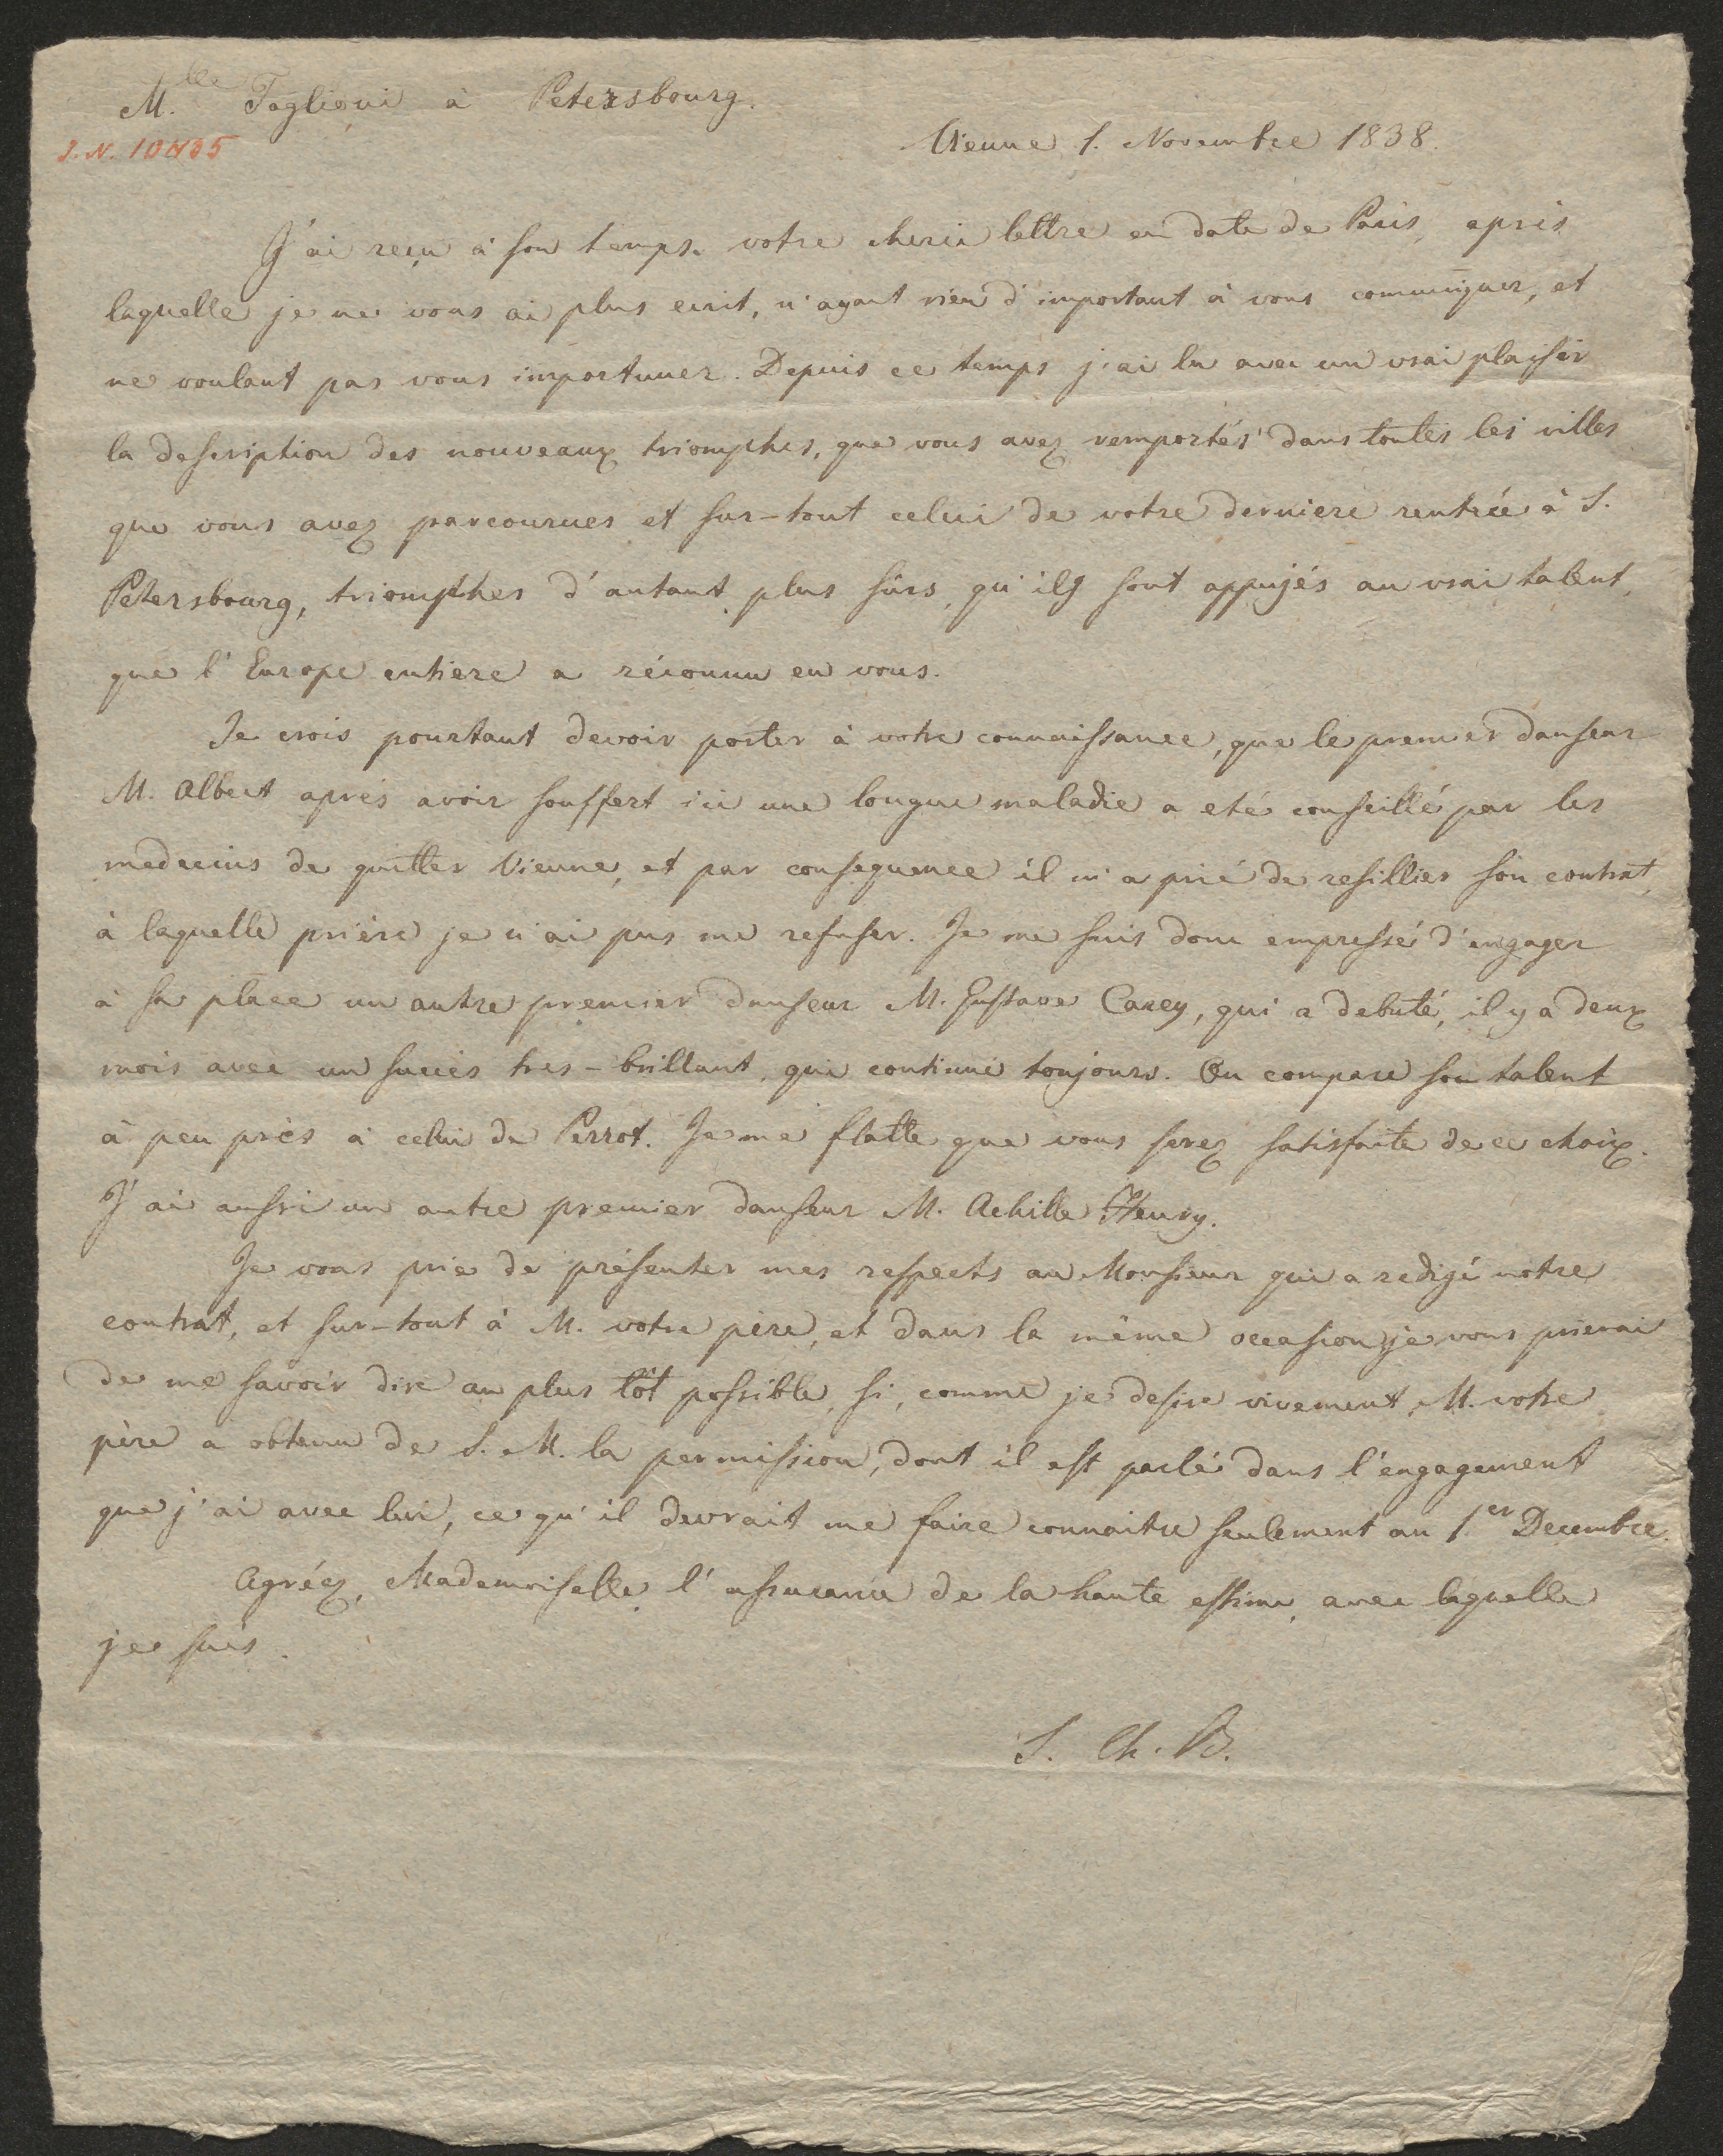 M.lle Taglioni à Petersbourg.
J. N. 10435
Vienne 1. Novembre 1838.
J'ai reçu à son temps votre cherie lettre en date de Paris, après
laquelle je ne vous ai plus ecrit, n'ayant rien d'important à vous communiquer, et
ne voulant pas vous importuner. Depuis ce temps j'ai lu avec un vrai plaisir
la description des nouveaux triomphes, que vous avez remportés dans toutes les villes
que vous avez parcourues et sur-tout celui de votre derniere rentrée à S.
Petersbourg, triomphes d'autant plus sûrs, qu'ils sont appujés au vrai talent,
que l'Europe entiere a réconnu en vous.
Je crois pourtant devoir porter à votre connaissance, que le premier danseur
M. Albert après avoir souffert ici une longue maladie a eté conseillé par les
medecins de quitter Vienne, et par consequence il m'a prié de resillier son contrat,
à laquelle prière je n'ai pus me refuser. Je me suis donc empressé d'engager
à sa place un autre premier danseur M. Gustave Carey, qui a debuté, il y a deux
mois avec un succès tres-brillant, qui continue toujours. On compare son talent
à peu près à celui de Perrot. Je me flatte que vous serez satisfaite de ce choix.
J'ai aussi un autre premier danseur M. Achille Henry.
Je vous prie de présenter mes respects au Monsieur qui a redigé notre
contrat, et sur-tout à M. votre père, et dans la même occasion je vous prierai
de me savoir dire au plus tôt possible, si, comme je desire vivement, M. votre
père a obtenu de S. M. la permission, dont il est parlé dans l'engagement
que j'ai avec lui, ce qu'il devrait me faire connaitre seulement au 1.er Decembre.
Agréez, Mademoiselle, l'assurance de la haute estime, avec laquelle
je suis.
S. Ch. B.